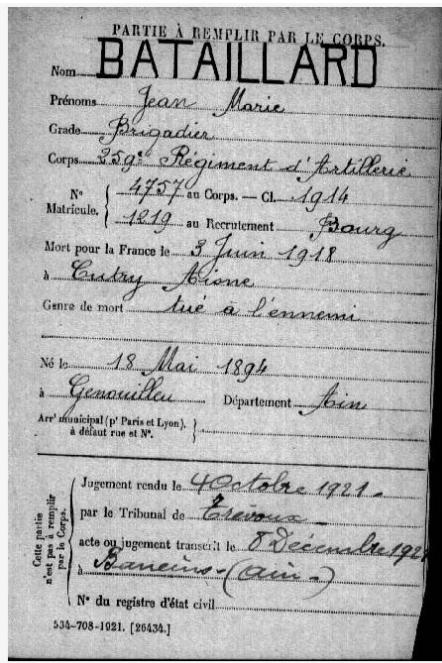 PARTIE À REMPLIR PAR LE CORPS.
Nom BATAILLARD
Prénoms Jean Marie
Grade Brigadier
Corps 259e Régiment d'Artillerie
N° Matricule. { 4757 au Corps. — Cl. 1914
1219 au Recrutement Bourg
Mort pour la France le 3 Juin 1918
à Cutry Aisne
Genre de mort tué à l'ennemi
Né le 18 Mai 1894
à Genouilleu Département Ain
Arrt municipal (pr Paris et Lyon), à défaut rue et N°. }
Cette partie n'est pas à remplir par le Corps.
Jugement rendu le 4 Octobre 1921
par le Tribunal de Trevoux
acte ou jugement transcrit le 8 Décembre 1921
à Baneins (Ain)
N° du registre d'état civil
534-708-1921. [26434.]